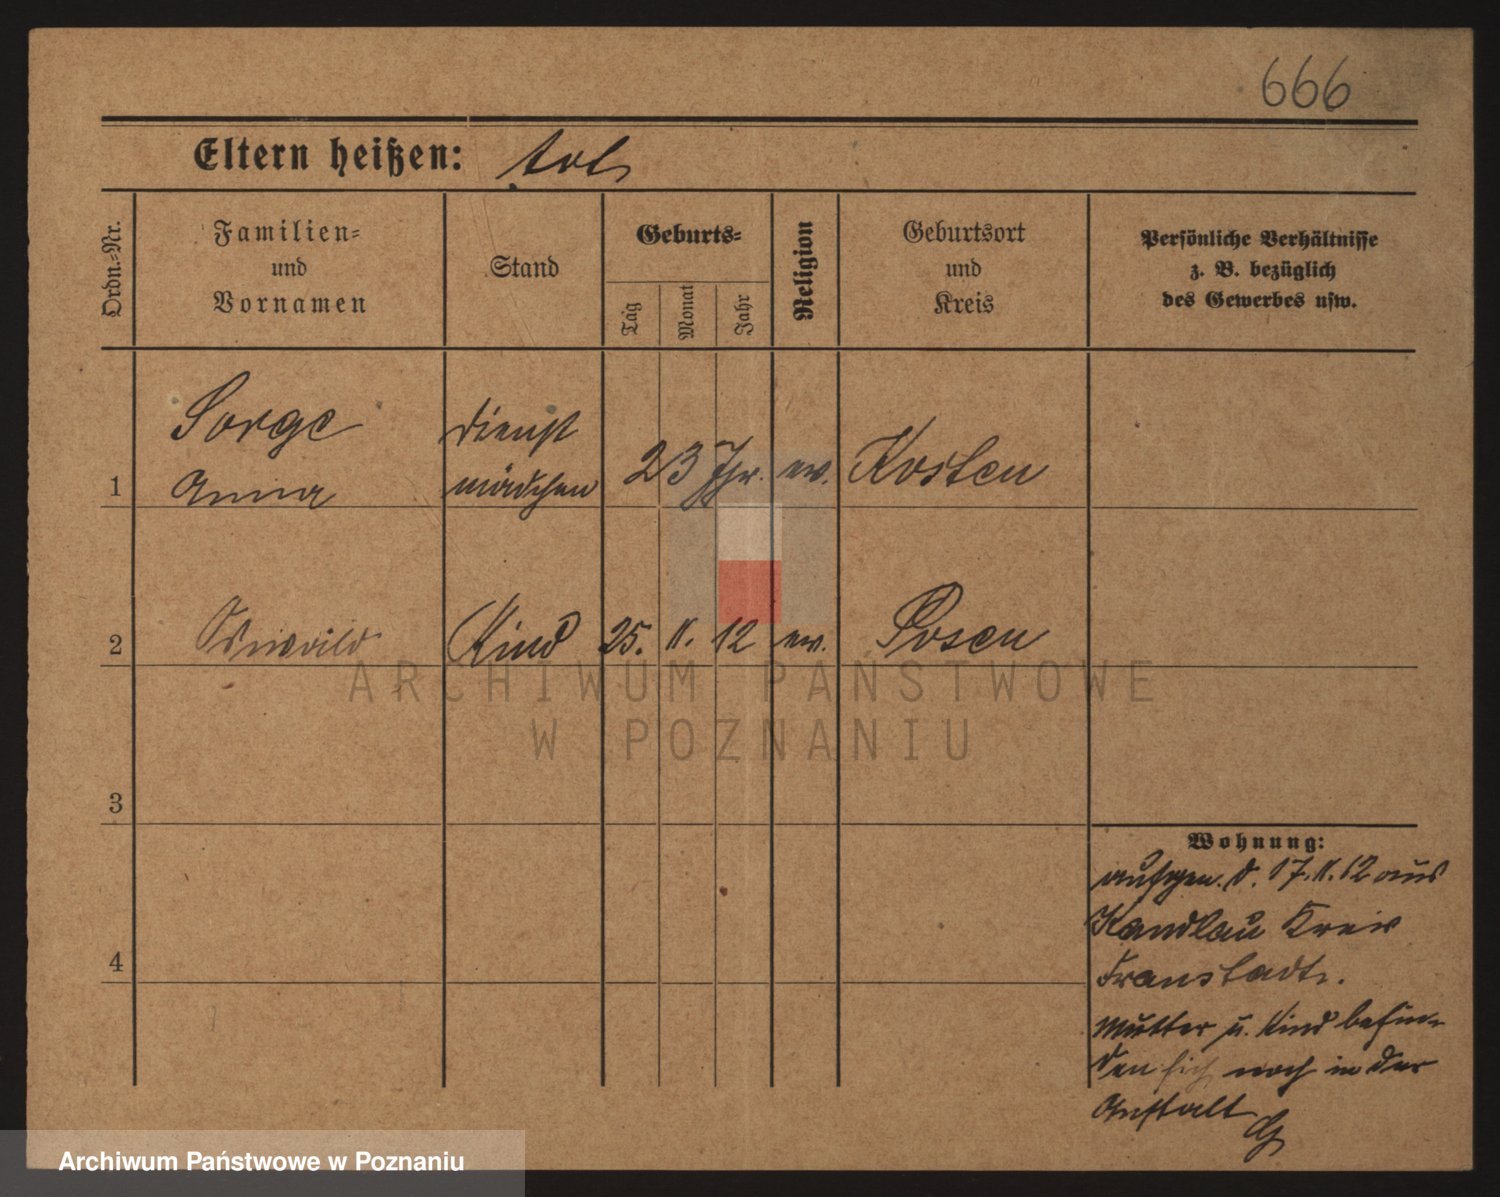 666
Eltern heißen: tot
Ordn.-Nr.
Familien-
und
Vornamen
Stand
Geburts-
Tag
Monat
Jahr
Religion
Geburtsort
und
Kreis
Persönliche Verhältnisse
z. B. bezüglich
des Gewerbes usw.
Sorge
Anna
dienst
mädchen
1
23 Jhr. ev. Kosten
2
Kind 25. II. 12 ev. Posen
ARCHIWUM PAŃSTWOWE
W POZNANIU
3
Wohnung:
aufgen. d. 17. II. 12 aus
Kandlau Kreis
Fraustadt.
4
Mutter u. Kind befin-
den sich noch in der
Anstalt
Archiwum Państwowe w Poznaniu